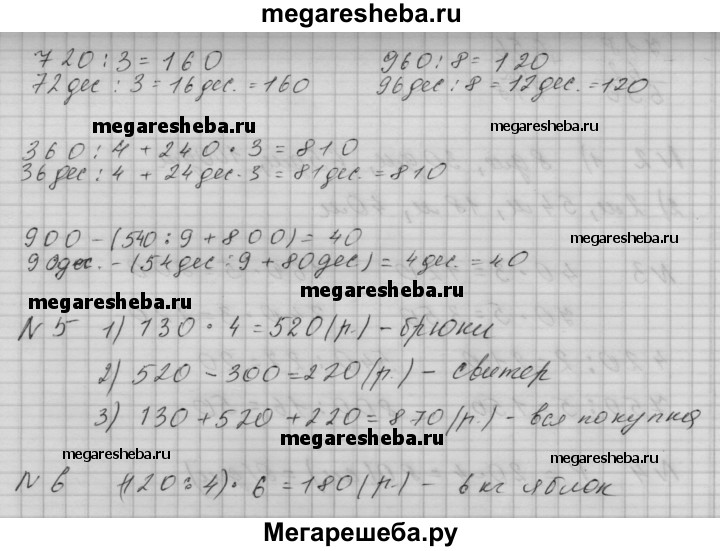 megaresheba.ru
720 : 3 = 160 960 : 8 = 120
72 дес : 3 = 16 дес. = 160 96 дес : 8 = 12 дес. = 120
megaresheba.ru megaresheba.ru
360 : 4 + 240 · 3 = 810
36 дес : 4 + 24 дес · 3 = 81 дес. = 810
900 - (540 : 9 + 800) = 40
megaresheba.ru
90 дес. - (54 дес : 9 + 80 дес.) = 4 дес. = 40
megaresheba.ru megaresheba.ru
N 5 1) 130 · 4 = 520 (р.) - брюки
2) 520 - 300 = 220 (р.) - свитер
3) 130 + 520 + 220 = 870 (р.) - вся покупка
megaresheba.ru megaresheba.ru megaresheba.ru
N 6 (120 : 4) · 6 = 180 (р.) - 6 кг яблок
Мегарешеба.ру